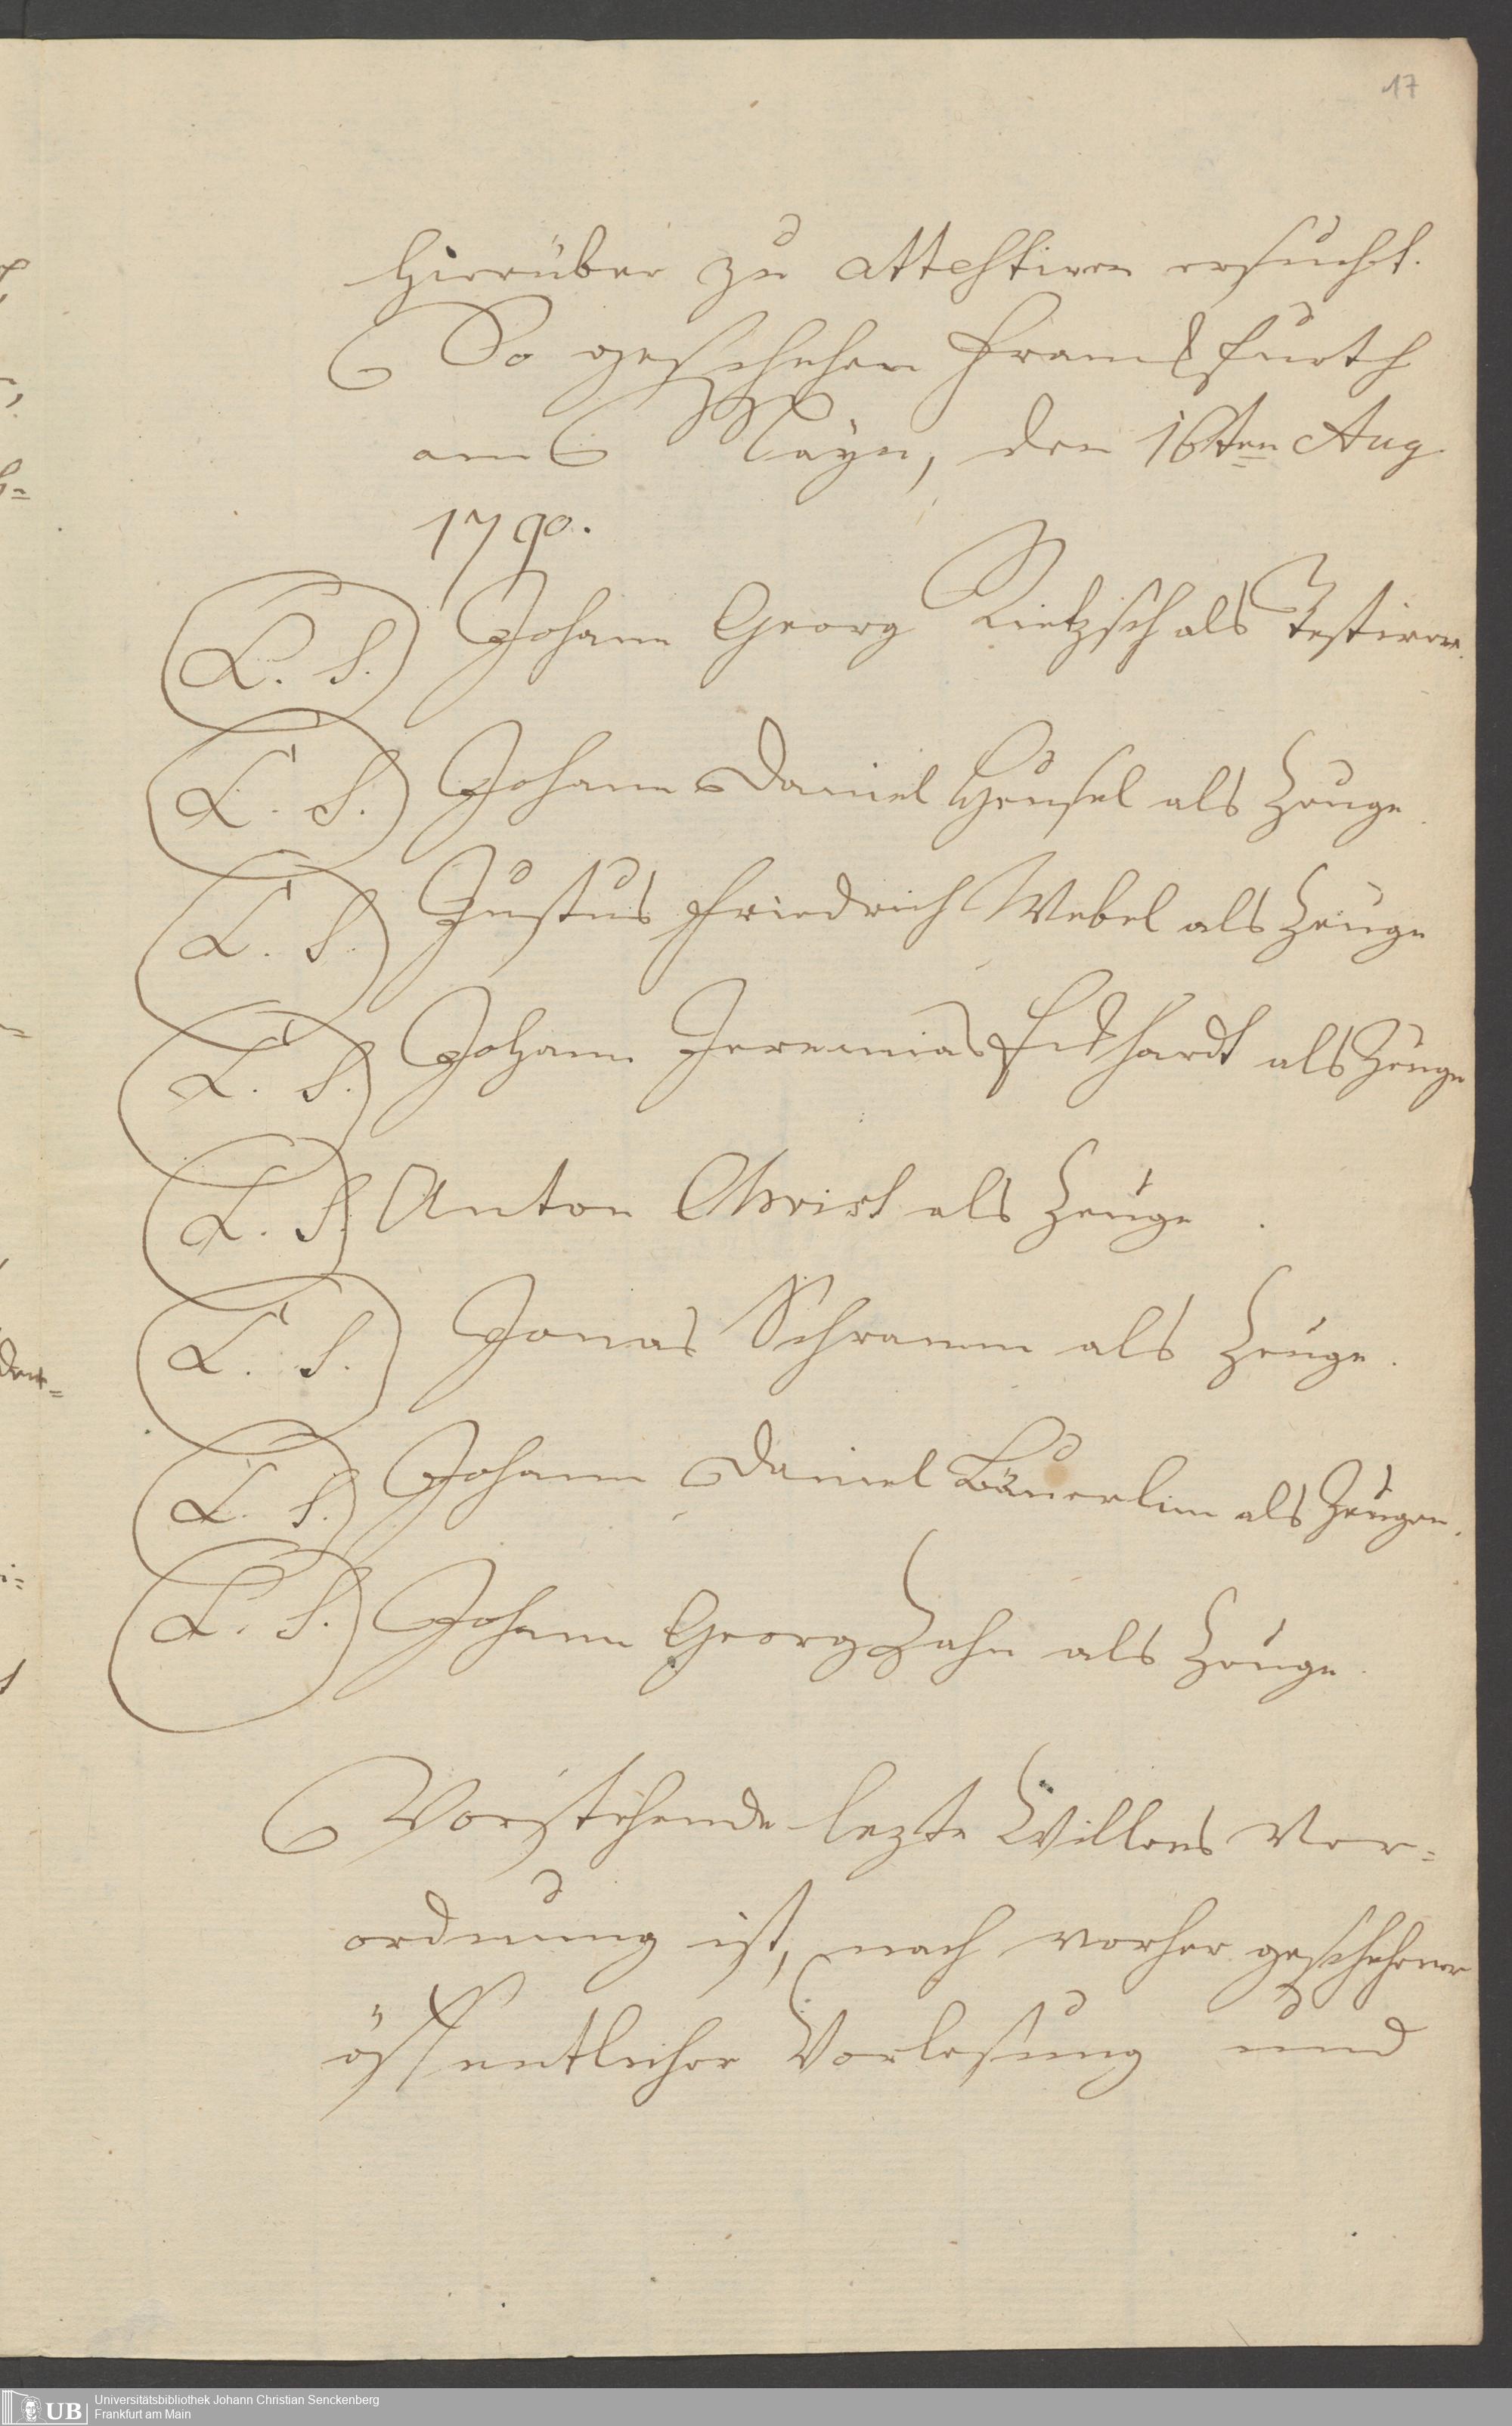 17
hierüber zu attestiren ersucht.
So geschehen Franckfurth
am Mayn, den 16ten Aug
1790.
L. S. Johann Georg Rietzsch als Testirer.
L. S. Johann Daniel Hensel als Zeuge
L. S. Justus Friedrich Webel als Zeuge
L. S. Johann Jeremias Eckhardt als Zeuge
L. S. Anton Christ als Zeuge
L. S. Jonas Schramm als Zeuge.
L. S. Johann Daniel Bäuerlein als Zeugen.
L. S. Johann Georg Hahn als Zeuge.
Vorstehende lezte Willens Ver=
ordnung ist, nach vorher geschehener
öffentlicher Vorlesung und
UB
Universitätsbibliothek Johann Christian Senckenberg
Frankfurt am Main